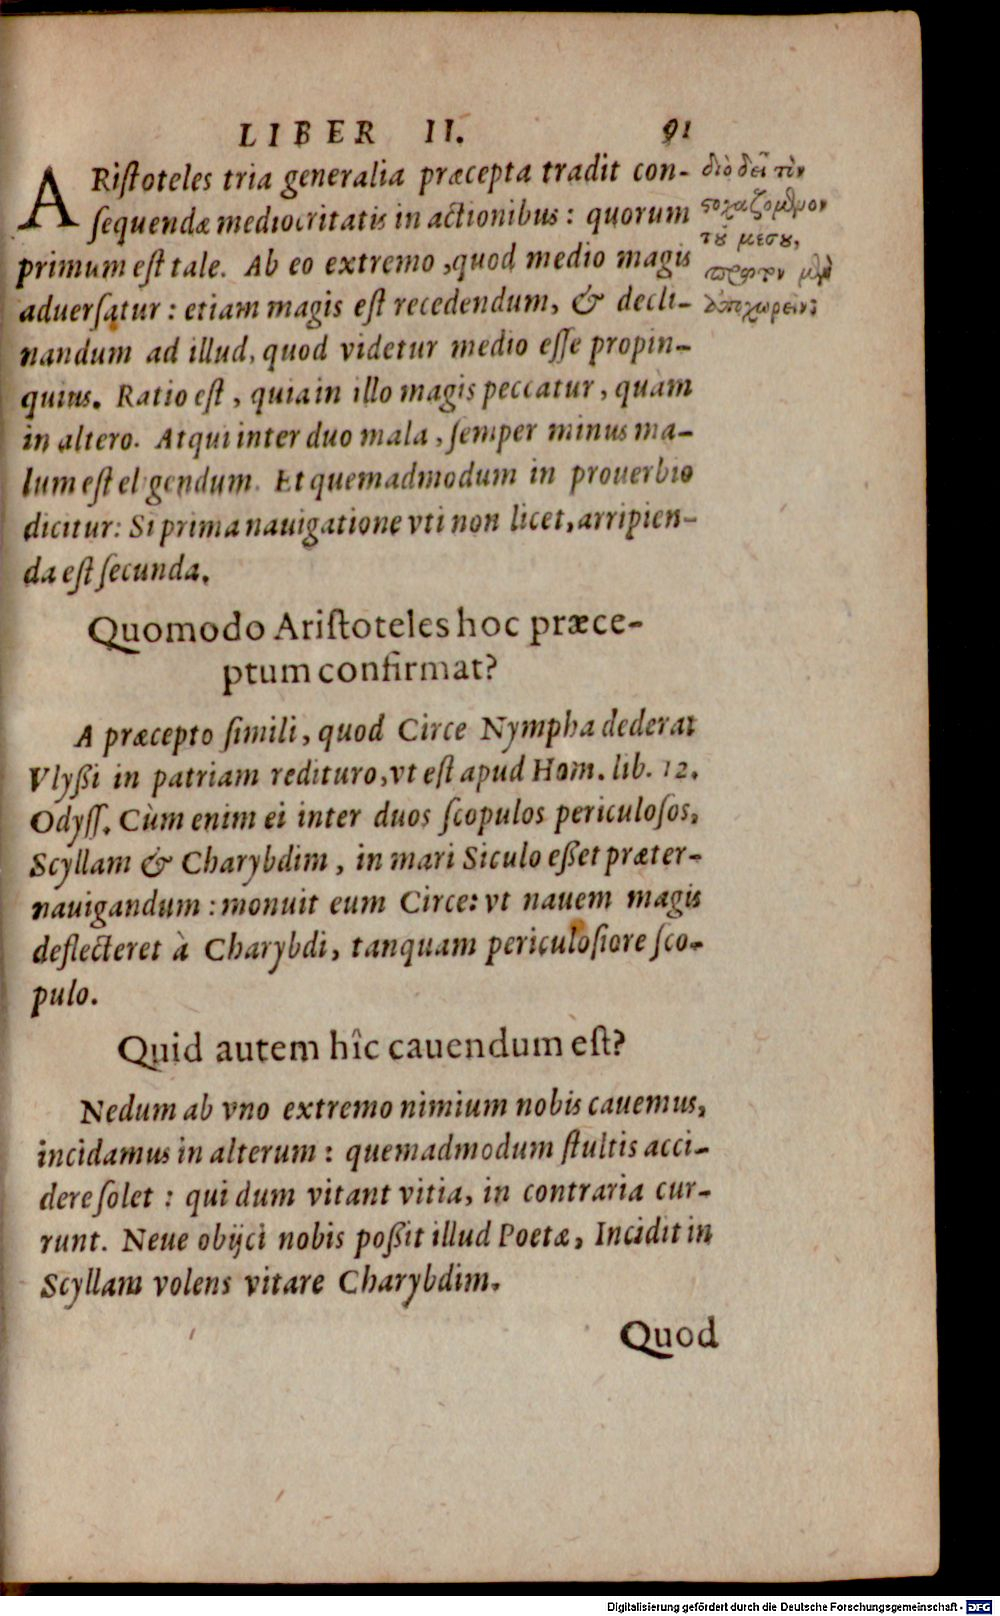 LIBER II. 91
ARistoteles tria generalia præcepta tradit con-
sequendæ mediocritatis in actionibus: quorum
primum est tale. Ab eo extremo, quod medio magis
aduersatur: etiam magis est recedendum, & decli-
nandum ad illud, quod videtur medio esse propin-
quius. Ratio est, quia in illo magis peccatur, quàm
in altero. Atqui inter duo mala, semper minus ma-
lum est el gendum. Et quemadmodum in prouerbio
dicitur: Si prima nauigatione vti non licet, arripien-
da est secunda.
διὸ δεῖ τὸν
στοχαζόμενον
τοῦ μέσου,
πρῶτον μὲν
ἀποχωρεῖν:
Quomodo Aristoteles hoc præce-
ptum confirmat?
A præcepto simili, quod Circe Nympha dederat
Vlyßi in patriam redituro, vt est apud Hom. lib. 12.
Odyss. Cùm enim ei inter duos scopulos periculosos,
Scyllam & Charybdim, in mari Siculo eßet præter-
nauigandum: monuit eum Circe: vt nauem magis
deflecteret à Charybdi, tanquam periculosiore sco-
pulo.
Quid autem hîc cauendum est?
Nedum ab vno extremo nimium nobis cauemus,
incidamus in alterum: quemadmodum stultis acci-
dere solet: qui dum vitant vitia, in contraria cur-
runt. Neue obijci nobis poßit illud Poetæ, Incidit in
Scyllam volens vitare Charybdim.
Quod
Digitalisierung gefördert durch die Deutsche Forschungsgemeinschaft - DFG